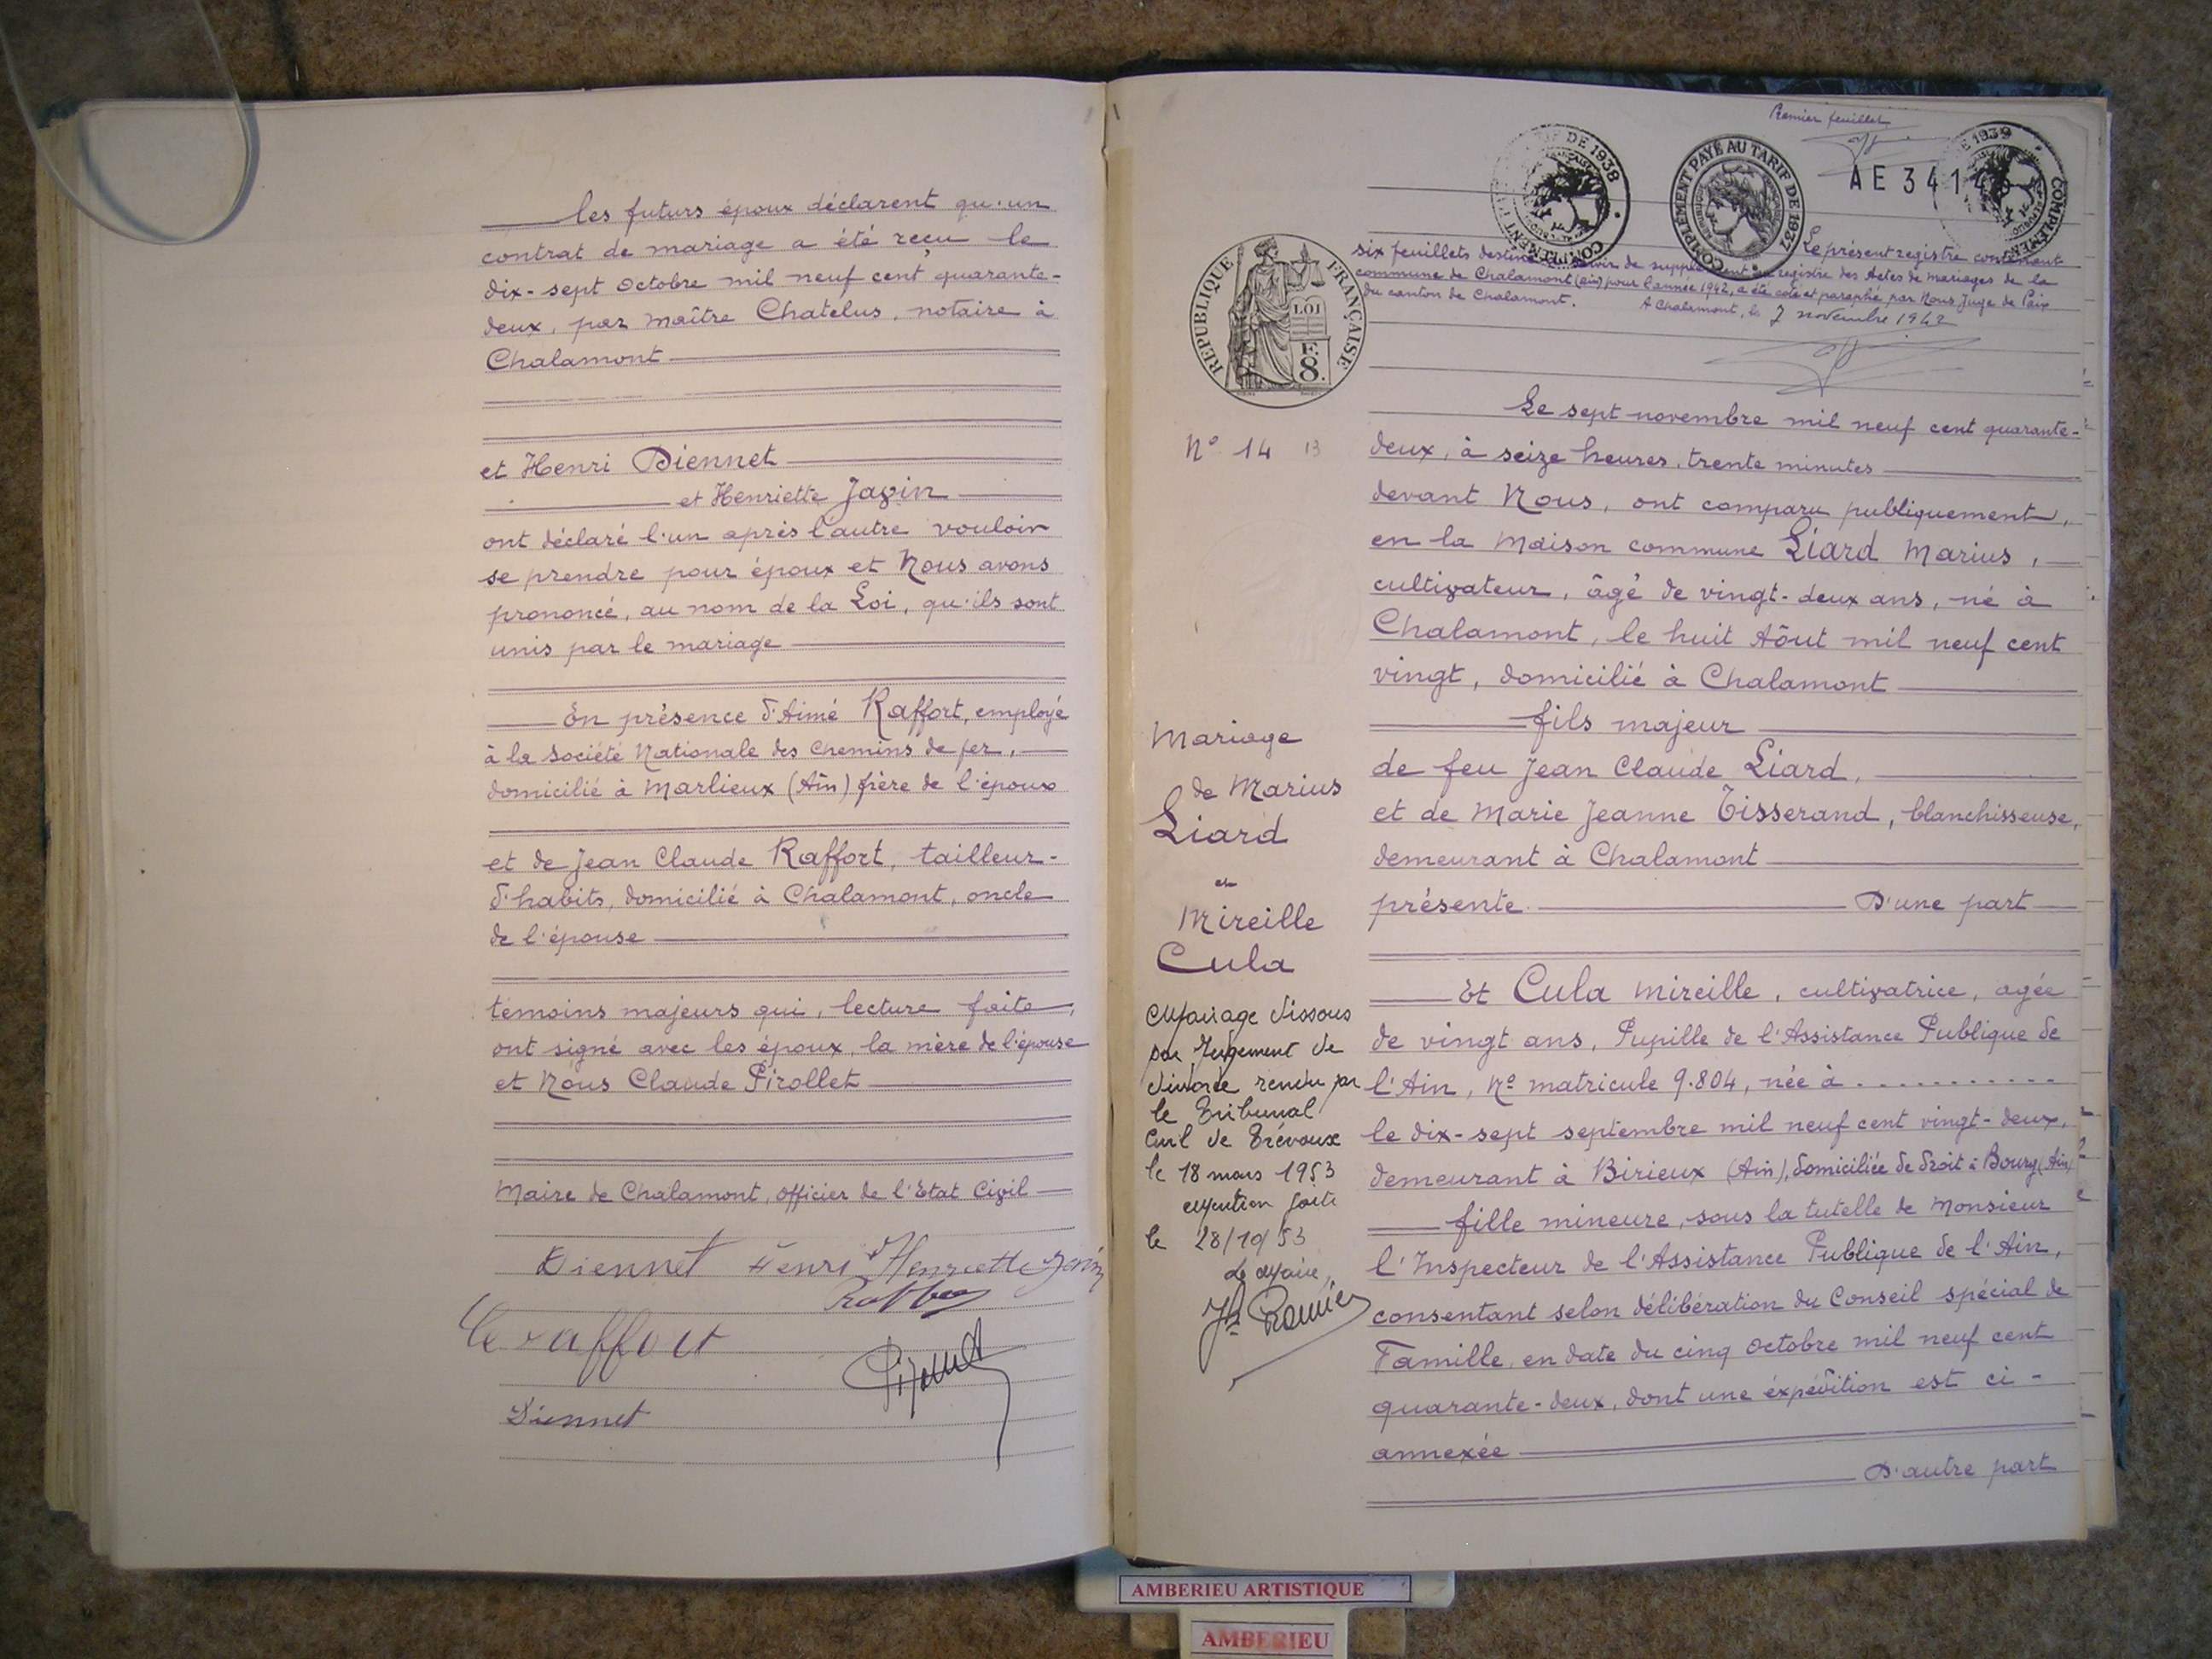 les futurs époux déclarent qu'un
contrat de mariage a été reçu le
dix-sept Octobre mil neuf cent quarante-
deux, par Maître Chatelus, notaire à
Chalamont
et Henri Diennet
et Henriette Javin
ont déclaré l'un après l'autre vouloir
se prendre pour époux et Nous avons
prononcé, au nom de la Loi, qu'ils sont
unis par le mariage
En présence d'Aimé Raffort, employé
à la Société Nationale des Chemins de fer,
domicilié à Marlieux (Ain) frère de l'époux
et de Jean Claude Raffort, tailleur-
d'habits, domicilié à Chalamont, oncle
de l'épouse
témoins majeurs qui, lecture faite,
ont signé avec les époux, la mère de l'épouse
et Nous Claude Pirollet
Maire de Chalamont, Officier de l'Etat Civil
Diennet Henri Henriette Javin
Raffort
Diennet
Premier feuillet
DE 1938
COMPLÉMENT PAYÉ AU TARIF DE 1937
AE 341
1939
COMPLÉMENT
REPUBLIQUE FRANÇAISE
LOI
F.
8.
Le présent registre contenant
six feuillets destiné à servir de supplément au registre des Actes de Mariages de la
commune de Chalamont (Ain) pour l'année 1942, a été coté et paraphé par Nous Juge de Paix
du canton de Chalamont. A Chalamont, le 7 novembre 1942
N° 14 13
Mariage
de Marius
Liard
et
Mireille
Cula
Mariage dissous
par Jugement de
divorce rendu par
le Tribunal
Civil de Trévoux
le 18 mars 1953
mention faite
le 28/10/53
Le Maire,
Le sept novembre mil neuf cent quarante-
deux, à seize heures, trente minutes
devant Nous, ont comparu publiquement,
en la Maison commune Liard Marius,
cultivateur, âgé de vingt-deux ans, né à
Chalamont, le huit Aôut mil neuf cent
vingt, domicilié à Chalamont
fils majeur
de feu Jean Claude Liard,
et de Marie Jeanne Tisserand, blanchisseuse,
demeurant à Chalamont
présente. D'une part
Et Cula Mireille, cultivatrice, agée
de vingt ans, Pupille de l'Assistance Publique de
l'Ain, N° matricule 9.804, née à ...........
le dix-sept septembre mil neuf cent vingt-deux,
demeurant à Birieux (Ain), domiciliée de droit à Bourg (Ain)
fille mineure, sous la tutelle de Monsieur
l'Inspecteur de l'Assistance Publique de l'Ain,
consentant selon délibération du Conseil spécial de
Famille, en date du cinq Octobre mil neuf cent
quarante-deux, dont une éxpédition est ci-
annexée
D'autre part
AMBERIEU ARTISTIQUE
AMBERIEU